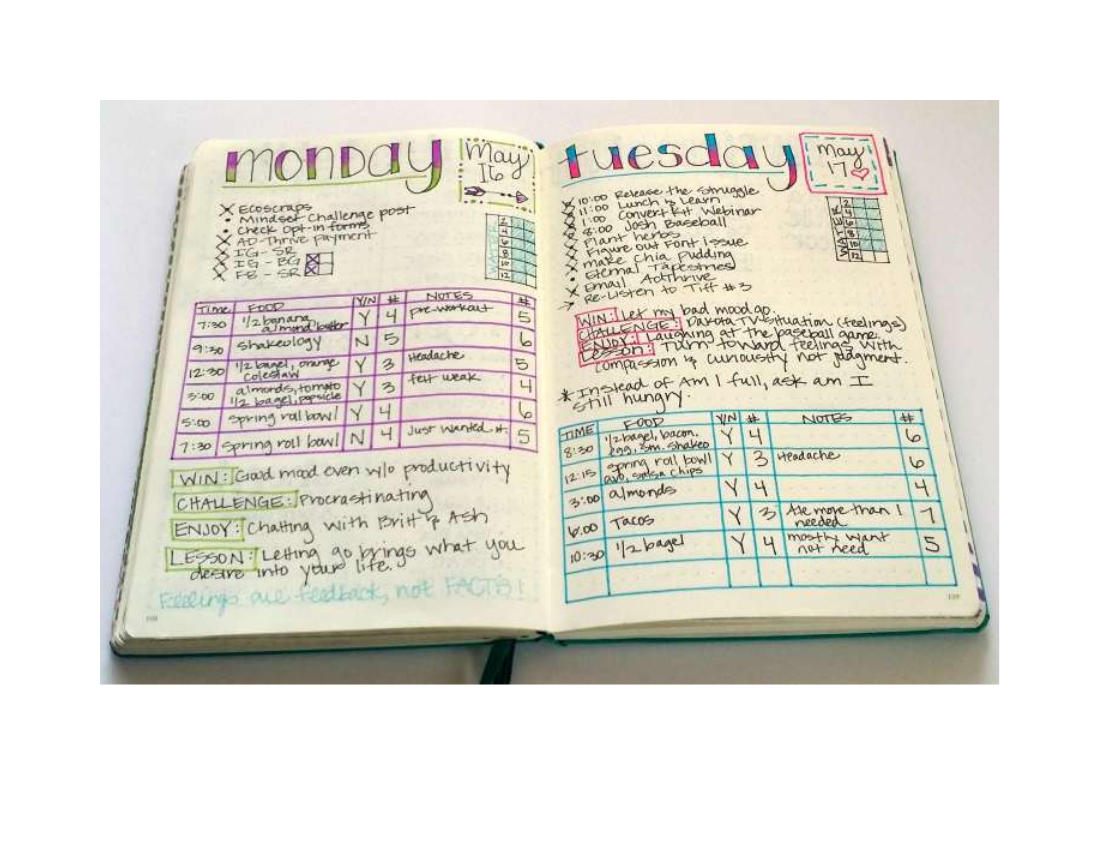 monday
May
16
X Ecoscraps
• Mindset Challenge post
• Check opt-in forms
X AD-Thrive payment
X IG - SR
X IG - BG
X FB - SR
WATER
2
4
6
8
10
12
TIME FOOD Y/N # NOTES #
7:30 1/2 banana almond butter Y 4 pre-workout 5
9:30 Shakeology N 5 6
12:30 1/2 bagel, orange coleslaw Y 3 Headache 5
3:00 almonds, tomato 1/2 bagel, popsicle Y 3 felt weak 4
5:00 spring roll bowl Y 4 6
7:30 spring roll bowl N 4 Just wanted it. 5
WIN: Good mood even w/o productivity
CHALLENGE: Procrastinating
ENJOY: Chatting with Britt & Ash
LESSON: Letting go brings what you
desire into your life.
Feelings are feedback, not FACTS!
tuesday
May
17
X 10:00 Release the Struggle
X 11:00 Lunch & Learn
X 1:00 Convert Kit Webinar
X 8:00 Josh Baseball
X Plant herbs
X Figure out Font issue
X make chia pudding
• Eternal Tapestries
X Email AdThrive
→ Re-Listen to Tiff #3
WATER
2
4
6
8
10
12
WIN: Let my bad mood go.
CHALLENGE: Dakota TV-situation (feelings)
ENJOY: Laughing at the baseball game.
Lesson: Turn toward feelings with
compassion & curiousity not judgment.
* Instead of Am I full, ask am I
still hungry.
TIME FOOD Y/N # NOTES #
8:30 1/2 bagel, bacon, egg, sm. shakeo Y 4 6
12:15 spring roll bowl avo, salsa chips Y 3 Headache 6
3:00 almonds Y 4 4
6:00 Tacos Y 3 Ate more than I needed 7
10:30 1/2 bagel Y 4 mostly want not need 5
139